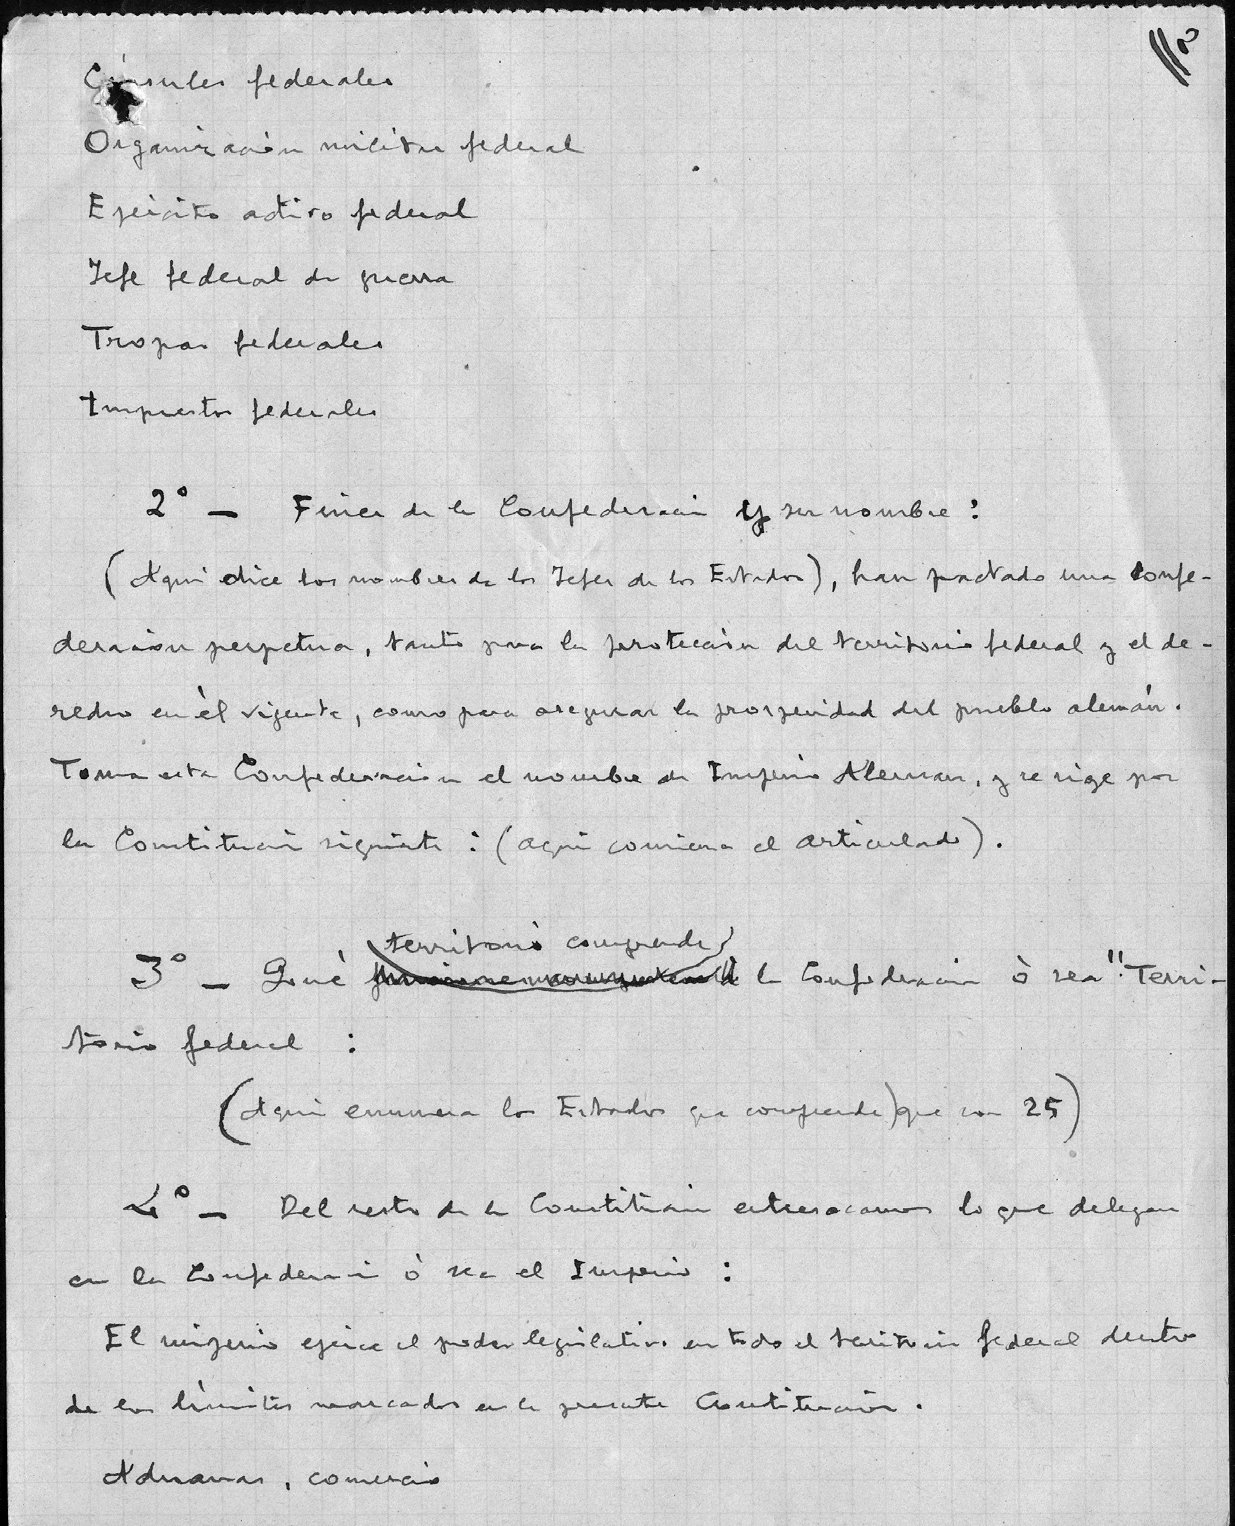 2
Cónsules federales
Organización militar federal
Ejército activo federal
Jefe federal de guerra
Tropas federales
Impuestos federales
2º — Fines de la Confederación y su nombre :
(Aquí dice los nombres de los Jefes de los Estados), han pactado una Confe-
deración perpetua, tanto para la protección del territorio federal y el de-
recho en él vigente, como para asegurar la prosperidad del pueblo alemán.
Toma esta Confederación el nombre de Imperio Aleman, y se rige por
la Constitución siguiente : (aquí comienza el articulado).
territorio comprende
3º — Qué la Confederación ó sea "Terri-
torio federal :
(Aquí enumera los Estados que comprende) que son 25)
4º — Del resto de la Constitución extresacamos lo que delegan
en la Confederación ó sea el Imperio :
El imperio ejerce el poder legislativo en todo el territorio federal dentro
de los límites marcados en la presente Constitución.
Aduanas, comercio